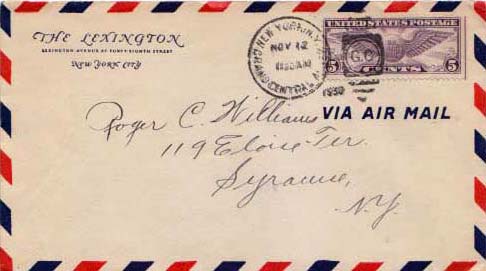 THE LEXINGTON
LEXINGTON AVENUE AT FORTY-EIGHTH STREET
NEW YORK CITY
NEW YORK, N.Y.
NOV 12
1930
GRAND CENTRAL
G.C.
UNITED STATES POSTAGE
5 CENTS 5
VIA AIR MAIL
Roger C. Williams
119 Eloise Ter.
Syracuse,
N.Y.